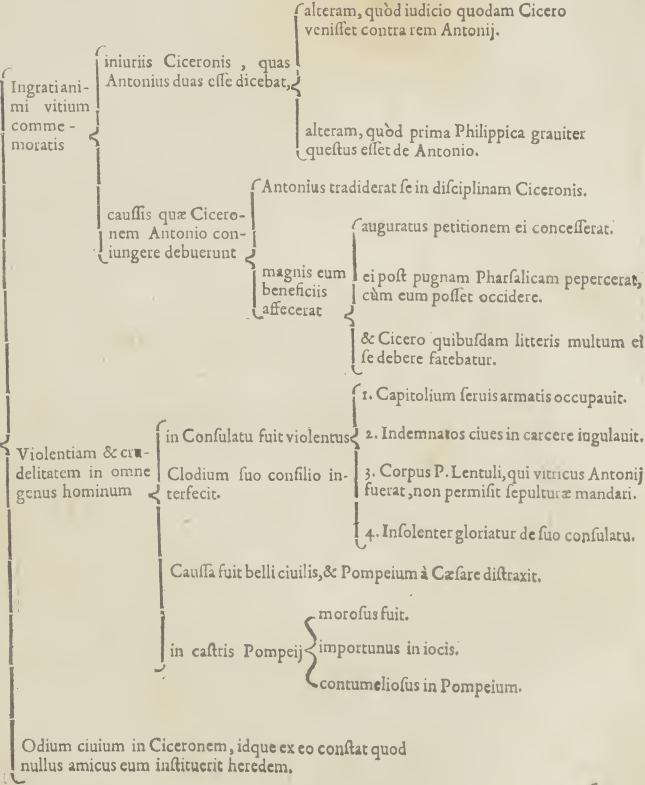 Ingrati ani-
mi vitium
comme-
moratis
iniuriis Ciceronis, quas
Antonius duas eſſe dicebat,
alteram, quòd iudicio quodam Cicero
veniſſet contra rem Antonij.
alteram, quòd prima Philippica grauiter
queſtus eſſet de Antonio.
cauſſis quæ Cicero-
nem Antonio con-
iungere debuerunt
Antonius tradiderat ſe in diſciplinam Ciceronis.
magnis eum
beneficiis
affecerat
auguratus petitionem ei conceſſerat.
ei poſt pugnam Pharſalicam pepercerat,
cùm eum poſſet occidere.
& Cicero quibuſdam litteris multum ei
ſe debere fatebatur.
Violentiam & cru-
delitatem in omne
genus hominum
in Conſulatu fuit violentus
1. Capitolium ſeruis armatis occupauit.
2. Indemnatos ciues in carcere iugulauit.
3. Corpus P. Lentuli, qui vitricus Antonij
fuerat, non permiſit ſepulturæ mandari.
4. Inſolenter gloriatur de ſuo conſulatu.
Clodium ſuo conſilio in-
terfecit.
Cauſſa fuit belli ciuilis, & Pompeium à Cæſare diſtraxit.
in caſtris Pompeij
moroſus fuit.
importunus in iocis.
contumelioſus in Pompeium.
Odium ciuium in Ciceronem, idque ex eo conſtat quod
nullus amicus eum inſtituerit heredem.